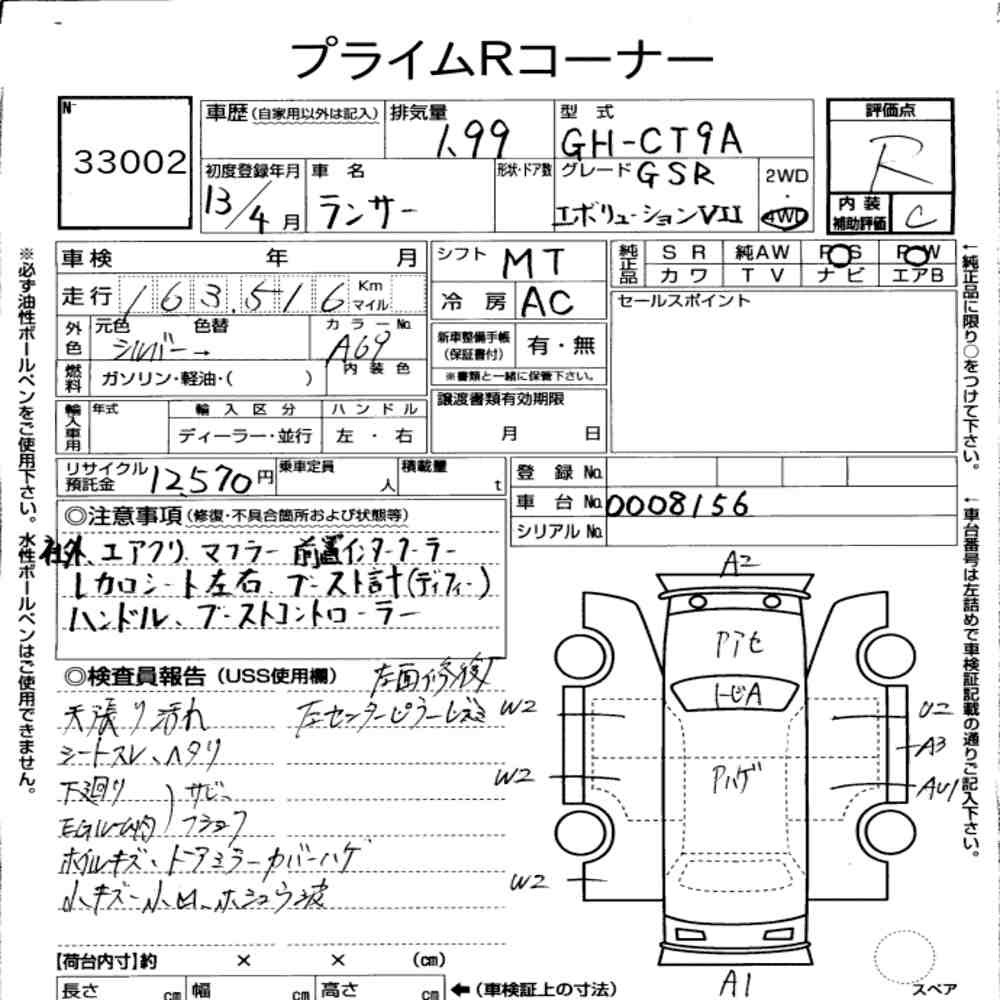 プライムRコーナー
N-
33002
車歴(自家用以外は記入)
排気量
1.99
型式
GH-CT9A
評価点
R
初度登録年月
13/4月
車名
ランサー
形状・ドア数
グレード GSR
エボリューションVII
2WD
・
4WD
内装
補助評価
C
車検 年 月
シフト MT
純正品
SR 純AW PS PW
カワ TV ナビ エアB
走行 163,516 Km
マイル
冷房 AC
セールスポイント
外色
元色 色替
シルバー→
カラーNo.
A69
新車整備手帳
(保証書付)
有・無
※書類と一緒に保管下さい。
燃料
ガソリン・軽油・( )
内装色
譲渡書類有効期限
月 日
輸入車用
年式
輸入区分
ハンドル
ディーラー・並行
左・右
リサイクル
預託金
12,570円
乗車定員
人
積載量
t
登録No.
車台No. 0008156
シリアルNo.
◎注意事項(修復・不具合箇所および状態等)
社外、エアクリ、マフラー 前置インタークーラー
レカロシート左右、ブースト計(ディフィー)
ハンドル、ブーストコントローラー
◎検査員報告(USS使用欄)
左面修後
天張り汚れ
左センターピラーヒズミ
シートスレ、ヘタリ
下廻り
サビ
EGルーム内
フショク
ホイルキズ、ドアミラーカバーハゲ
小キズ、小凹、ホシュウ波
A2
Pアセ
トビA
Pハゲ
W2
W2
W2
U2
A3
AU1
A1
スペア
【荷台内寸】約 × × (cm)
長さ cm 幅 cm 高さ cm
←(車検証上の寸法)
※必ず油性ボールペンをご使用下さい。水性ボールペンはご使用できません。
←純正品に限り○をつけて下さい。
←車台番号は左詰めで車検証記載の通りご記入下さい。